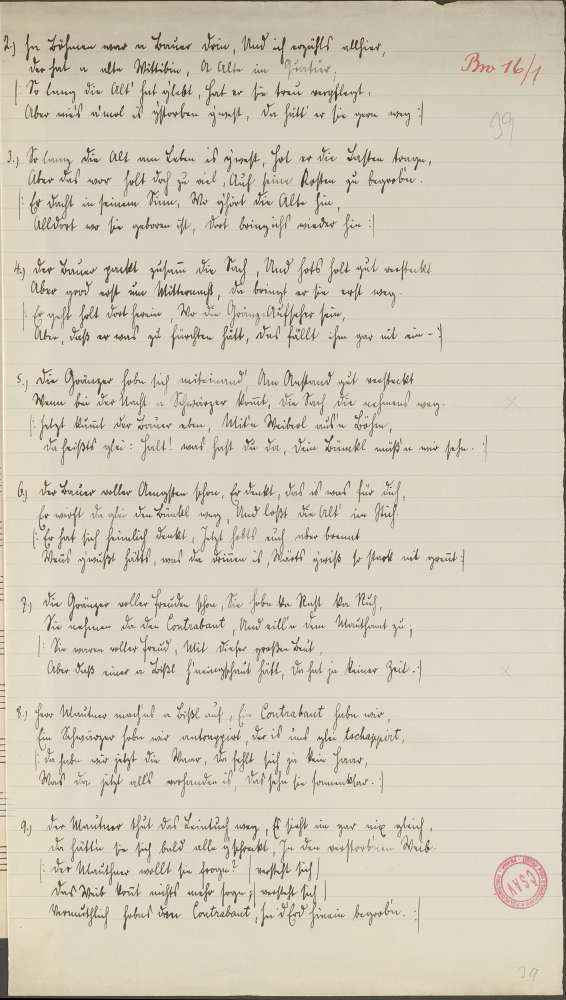 Bm 16/1
2.) In Böhmen war a Bauer drin, Und ich erzähls allhier,
Der hat a alte Wittibin, A Alte im Quatier,
|: So lang die Alt' hat glebt, hat er sie treu verpflegt,
Aber wie's a'mol is gstorben gwest, da hätt' er sie gern weg :|
99
3.) So lang die Alt am Leben is gwest, Hot er die Lasten trage,
Aber das war holt doch zu viel, Auf seine Kosten zu begrob'n.
|: Er docht in seinem Sinn, Wo g'hört die Alte hin,
Alldort wo sie geboren ist, dort bring ichs wieder hin :|
4.) Der Bauer packt zusam̄ die Sach, Und hots holt gut versteckt
Aber grod erst um Mitternacht, da bringt er sie erst weg.
|: Er geht holt dort herein, Wo die Gränz-Aufseher sein,
Aber, daß er was zu fürchten hätt, das fällt ihm gar nit ein :|
5.) Die Gränzer habn sich miteinand', Am Anstand gut versteckt
Wenn bei der Nacht a Schwärzer kom̄t, die Sach die nehmens weg.
|: Jetzt kim̄t der Bauer eben, Mit'n Weiberl aus'n Böhm,
da heißts glei: Halt! was hast du da, dein Binkel müß'n mir sehn. :|
6.) Der Bauer voller Aengsten schon, Er denkt, das is was für dich,
Er wirft da glei den Bünkl weg, Und laßt die Alt' im Stich
|: Er hat sich heimlich denkt, Jetzt habts euch aber brennt
Wenns gwußt hätts, was da drinn is, Wärts gwiß so stark nit grennt :|
7.) Die Gränzer voller Freuden schon, Sie habn ka Rast ka Ruh,
Sie nehmen da den Contrabant, Und eill'n dem Mauthamt zu;
|: Sie waren voller Freud, Mit dieser großen Beut,
Aber daß einer a Bißl h'neingschaut hätt, Da hat ja keiner Zeit :|
8.) Herr Mautner mach'ns a Bißl auf, Ein Contrabant habn wir,
Ein Schwärzer habn wir antrappirt, der is uns glei tschappirt,
|: Da habn wir jetzt die Waar, Da fehlt sich ja kein Haar,
Was da jetzt alls vorhanden is, das sehn sie sonnenklar. :|
9.) Der Mautner thut das Leintuch weg, Es sieht im gar nix gleich,
Da hätt'n sie sich bald alle gschreckt, In den verstorbnen Weib.
|: Der Mauthner wollt sie frogn? | versteht sich |
Das Weib kon̄t nichts mehr sogn; | versteht sich |
Vermuthlich habns den Contrabant, In d'Erd hinein begrob'n. :|
ČSAV
39